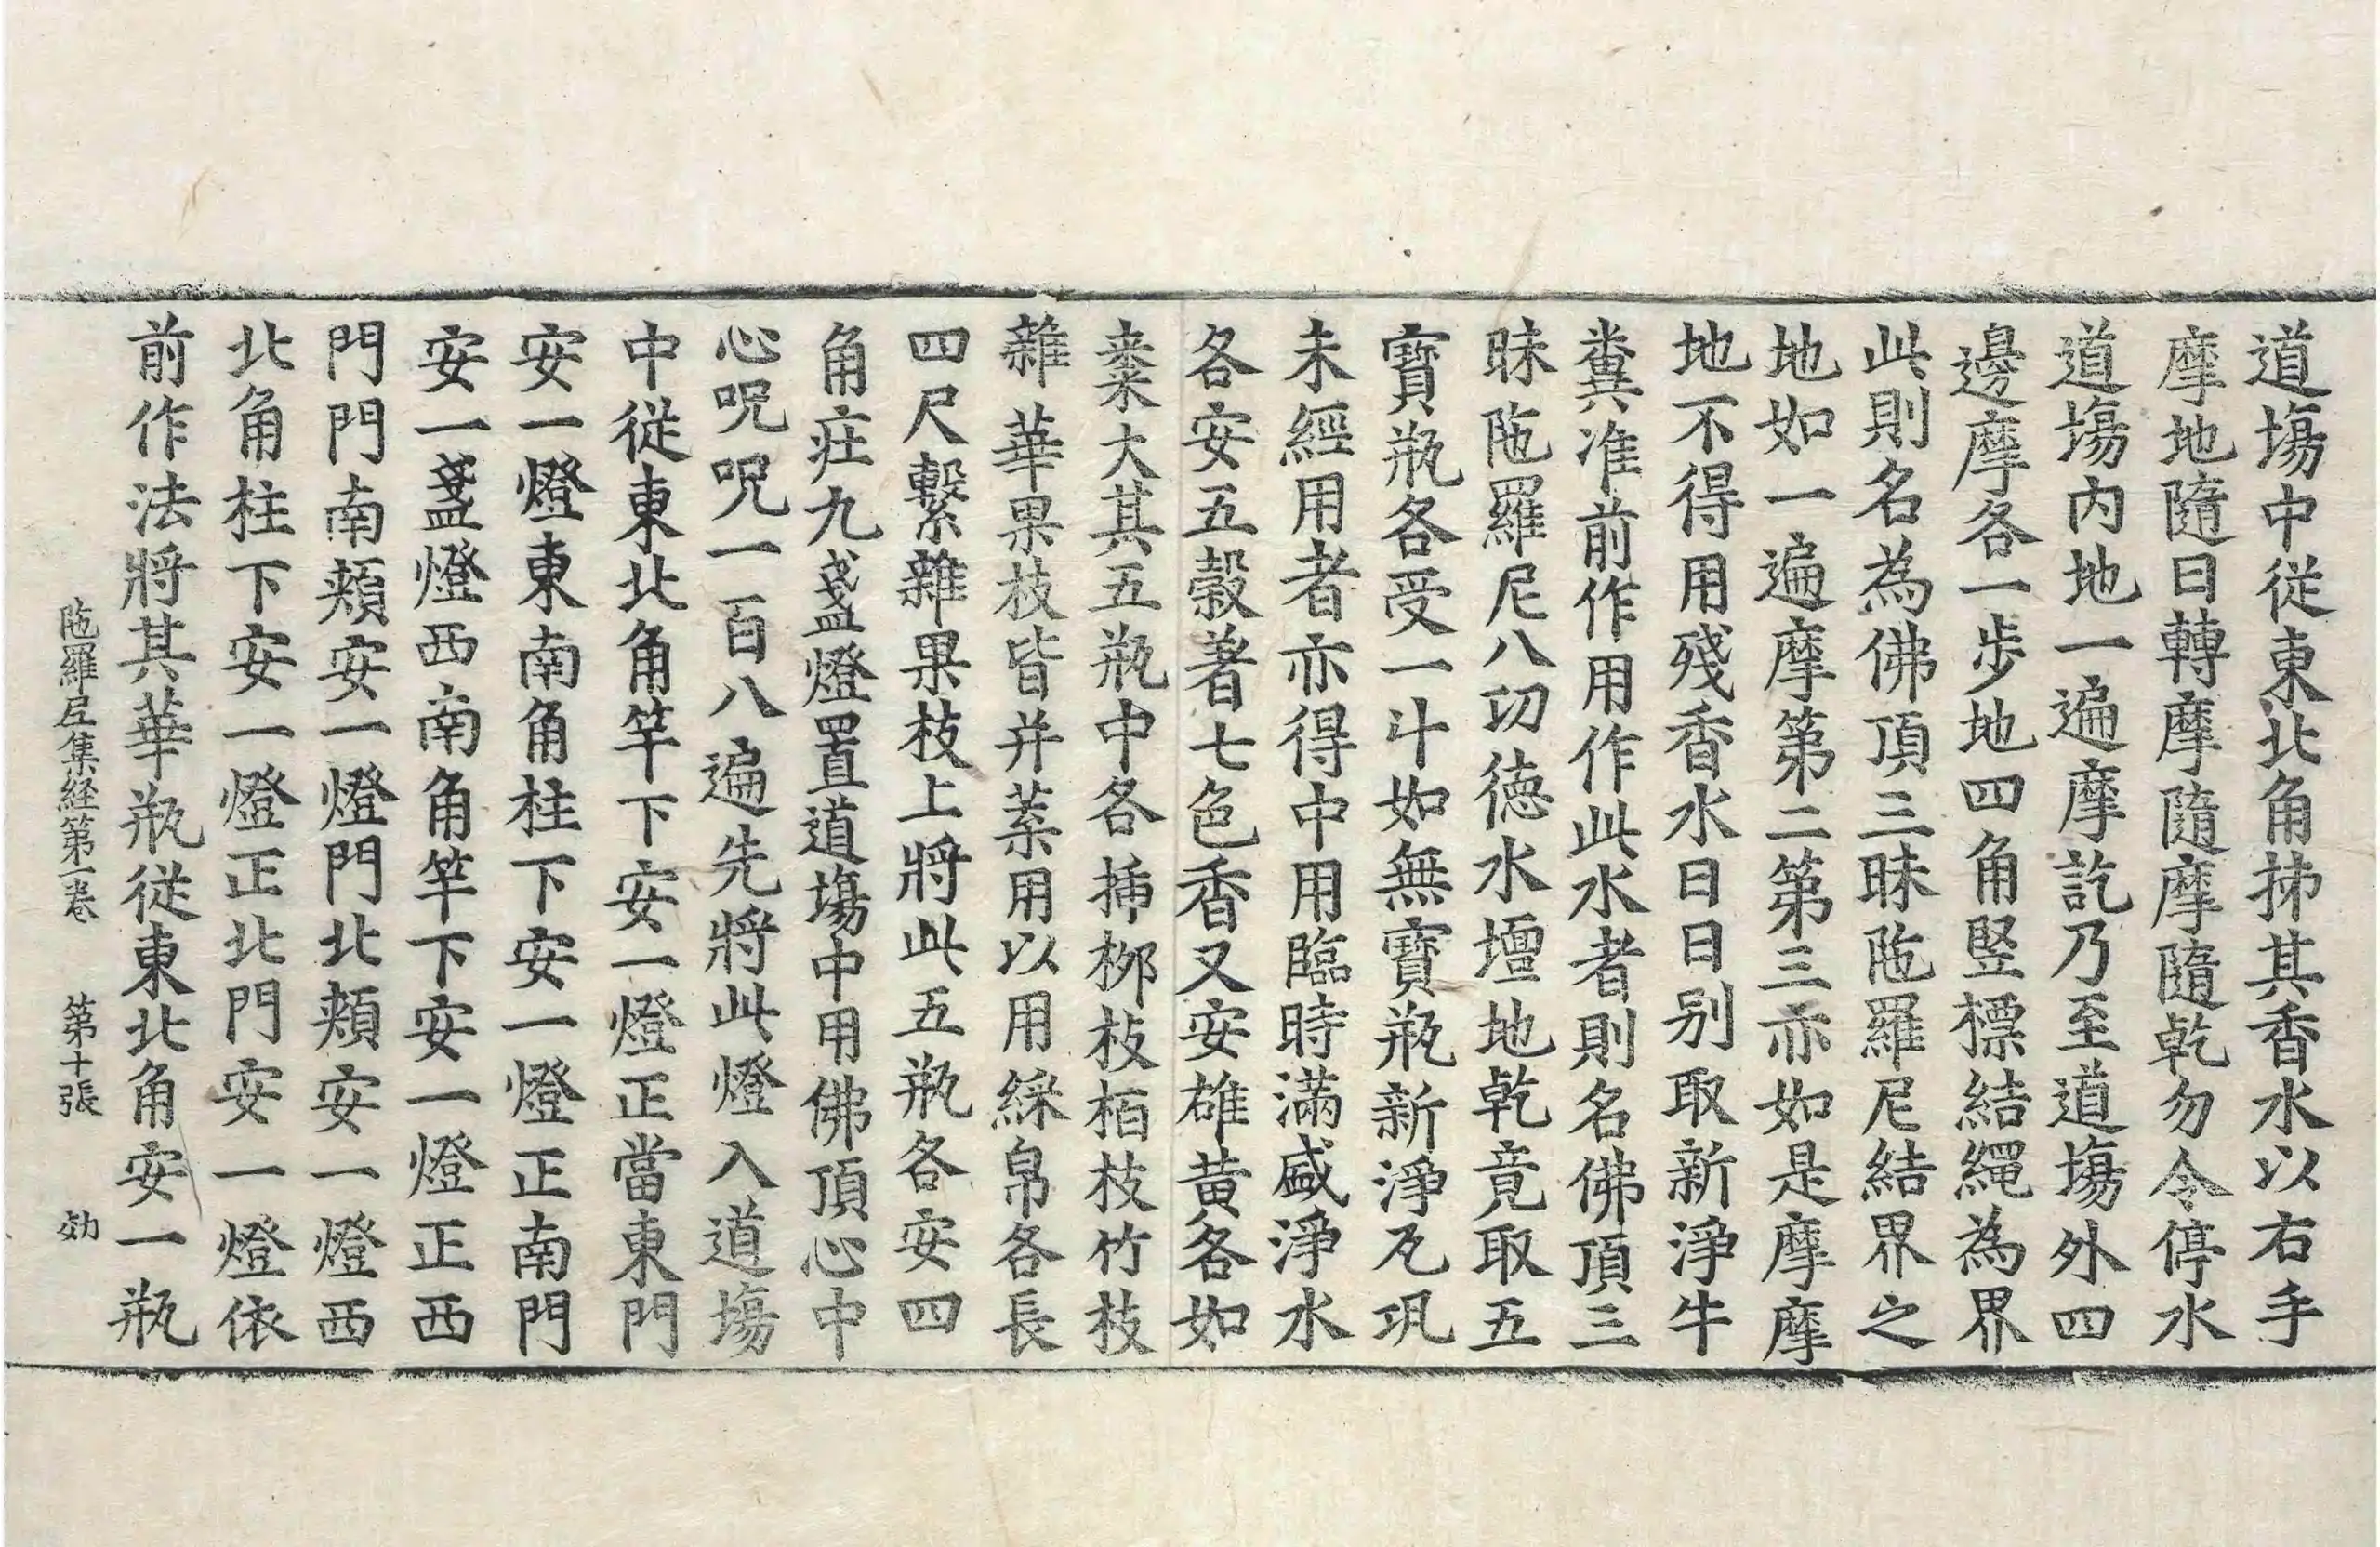 道場中從東北角拂其香水以右手
摩地隨日轉摩隨摩隨乾勿令停水
道場内地一遍摩訖乃至道場外四
邊摩各一步地四角竪標結繩為界
此則名為佛頂三昧陁羅尼結界之
地如一遍摩第二第三亦如是摩摩
地不得用殘香水日日别取新淨牛
糞准前作用作此水者則名佛頂三
昧陁羅尼八㓛徳水壇地乾竟取五
寶瓶各受一斗如無寶瓶新淨瓦巩
未經用者亦得中用臨時滿盛淨水
各安五穀著七色香又安雄黄各如
棗大其五瓶中各揷栁枝栢枝竹枝
雜華果枝皆并葉用以用綵帛各長
四尺繫雜果枝上將此五瓶各安四
角㽵九盞燈置道場中用佛頂心中
心呪呪一百八遍先將此燈入道場
中從東北角竿下安一燈正當東門
安一燈東南角柱下安一燈正南門
安一盞燈西南角竿下安一燈正西
門門南頰安一燈門北頰安一燈西
北角柱下安一燈正北門安一燈依
前作法將其華瓶從東北角安一瓶
陁羅尼集経第一卷 第十張 効